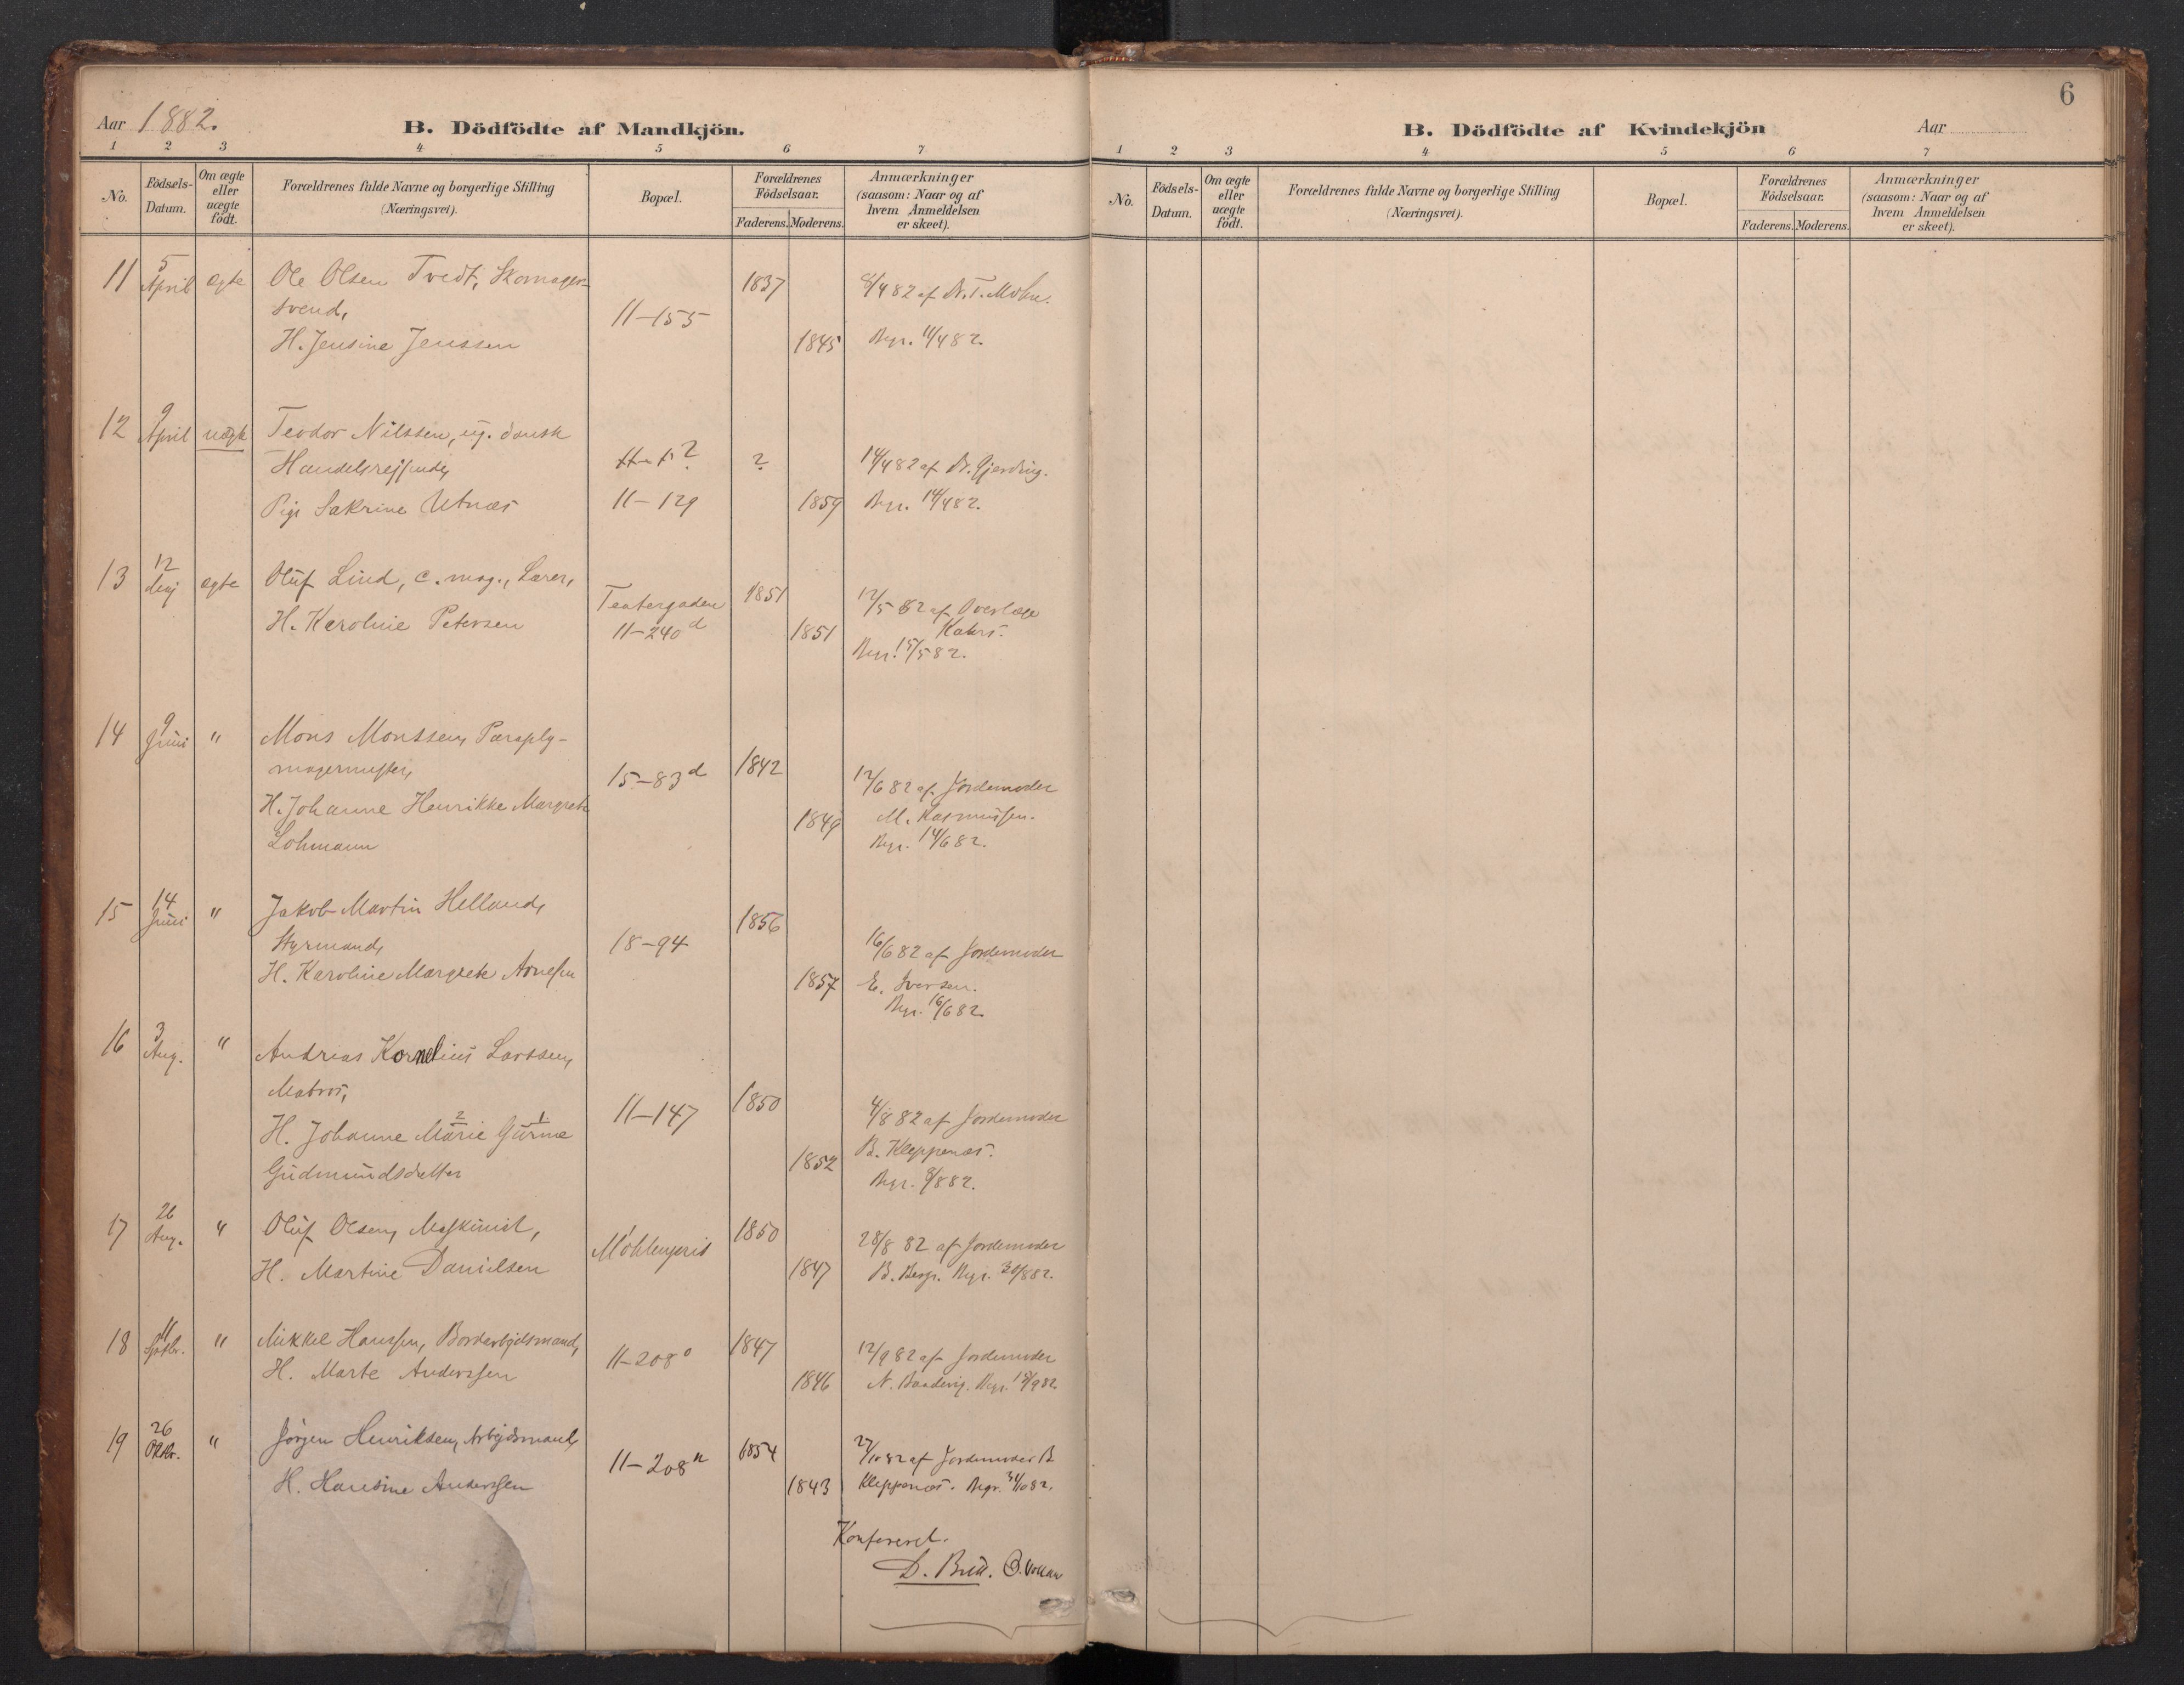 Aar 1882.
B. Dödfödte af Mandkjön.
1 2 3 4 5 6 7
No.
Födsels-Datum.
Om ægte eller uægte födt.
Forældrenes fulde Navne og borgerlige Stilling (Næringsvei).
Bopæl.
Forældrenes Födselsaar.
Faderens. Moderens.
Anmærkninger (saasom: Naar og af hvem Anmeldelsen er skeet).
11 5 April ægte Ole Olsen Tvedt, Skomager- 1837 8/4 82 af Dr. T. Mohn.
svend, 11-155
H. Jensine Jenssen 1845 Begr. 11/4 82.
12 9 April uægte Teodor Nilssen, ug. dansk
Handelsrejsende, ? 14/4 82 af Dr. Gjerding.
Pige Sakrine Utnæs 11-129 1859 Begr. 14/4 82.
13 12 Maj ægte Oluf Lind, c. mag., Lærer, Teatergaden 1851 12/5 82 af Overlæge
H. Karoline Petersen 11-240 d 1851 Kahrs.
Begr. 15/5 82.
14 9 Juni " Mons Monssen, Paraply-
magermester, 15-83 d 1842 12/6 82 af Jordemoder
H. Johanne Henrikke Margrete 1849 M. Rasmussen.
Lohmann Begr. 14/6 82.
15 14 Juni " Jakob Martin Helland, 1856
Styrmand, 18-94 16/6 82 af Jordemoder
H. Karoline Margrete Arnesen 1857 E. Iversen.
Begr. 16/6 82.
16 3 Aug. " Andreas Kornelius Larssen,
Matros, 11-147 1850 4/8 82 af Jordemoder
H. Johanne 2 Marie 1 Gurine 1852 B. Kleppenæs.
Gudmundsdatter Begr. 8/8 82.
17 26 Aug. " Oluf Olsen, Maskinist, 1850 28/8 82 af Jordemoder
H. Martine Danielsen Möhlenpris 1847 B. Berge. Begr. 30/8 82.
18 11 Septbr. " Mikkel Hanssen, Bordarbejdsmand, 1847 12/9 82 af Jordemoder
H. Marte Anderssen 11-208 o 1846
19 26 Oktbr. " Jörgen Henriksen, Arbejdsmand, 1854 27/10 82 af Jordemoder B.
H. Hansine Anderssen 11-208 n 1843 Kleppenæs. Begr. 31/10 82.
Konfereret.
6
B. Dödfödte af Kvindekjön
Aar
1 2 3 4 5 6 7
No.
Födsels-Datum.
Om ægte eller uægte födt.
Forældrenes fulde Navne og borgerlige Stilling (Næringsvei).
Bopæl.
Forældrenes Födselsaar.
Faderens. Moderens.
Anmærkninger (saasom: Naar og af hvem Anmeldelsen er skeet).